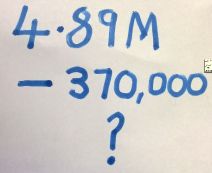 4.89M
- 370,000
?